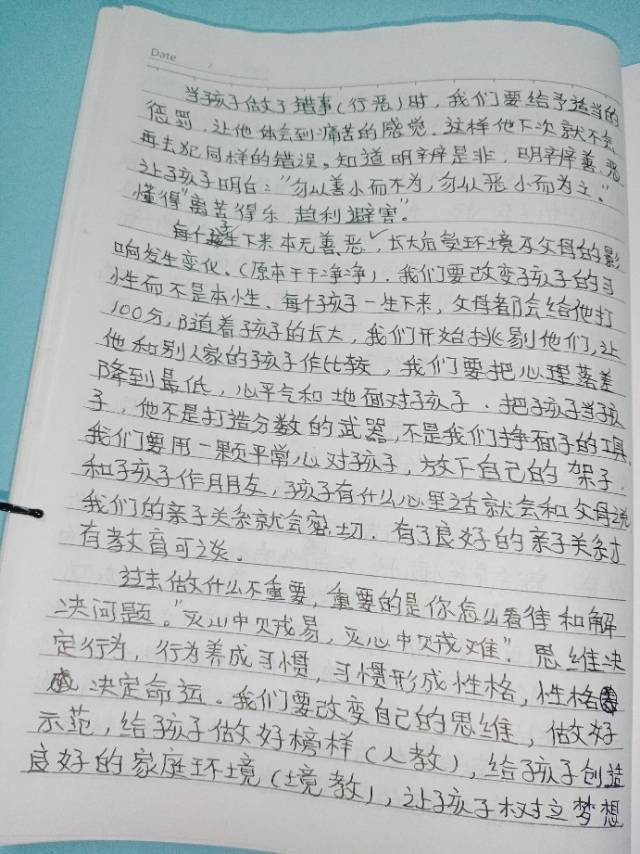 Date
当孩子做了错事(行恶)时，我们要给予适当的
惩罚，让他体会到痛苦的感觉，这样他下次就不会
再去犯同样的错误。知道明辨是非，明辨善恶，
让孩子明白："勿以善小而不为，勿以恶小而为之。"
懂得"离苦得乐 趋利避害"。
每个孩生下来本无善恶，长大后受环境及父母的影
响发生变化。(原本干干净净)．我们要改变孩子的习
性而不是本性、每个孩子一生下来，父母都会给他打
100分，随着孩子的长大，我们开始挑剔他们，让
他和别人家的孩子作比较，我们要把心理落差
降到最低，心平气和地面对孩子．把孩子当孩
子，他不是打造分数的武器，不是我们挣面子的工具，
我们要用一颗平常心对孩子，放下自己的架子．
和孩子作朋友，孩子有什么心里话就会和父母说
我们的亲子关系就会密切．有了良好的亲子关系才
有教育可谈。
过去做什么不重要，重要的是你怎么看待和解
决问题。"灭山中贼易，灭心中贼难"．思维决
定行为，行为养成习惯，习惯形成性格，性格
决定命运。我们要改变自己的思维，做好
示范，给孩子做好榜样(人教)，给孩子创造
良好的家庭环境(境教)，让孩子树立梦想